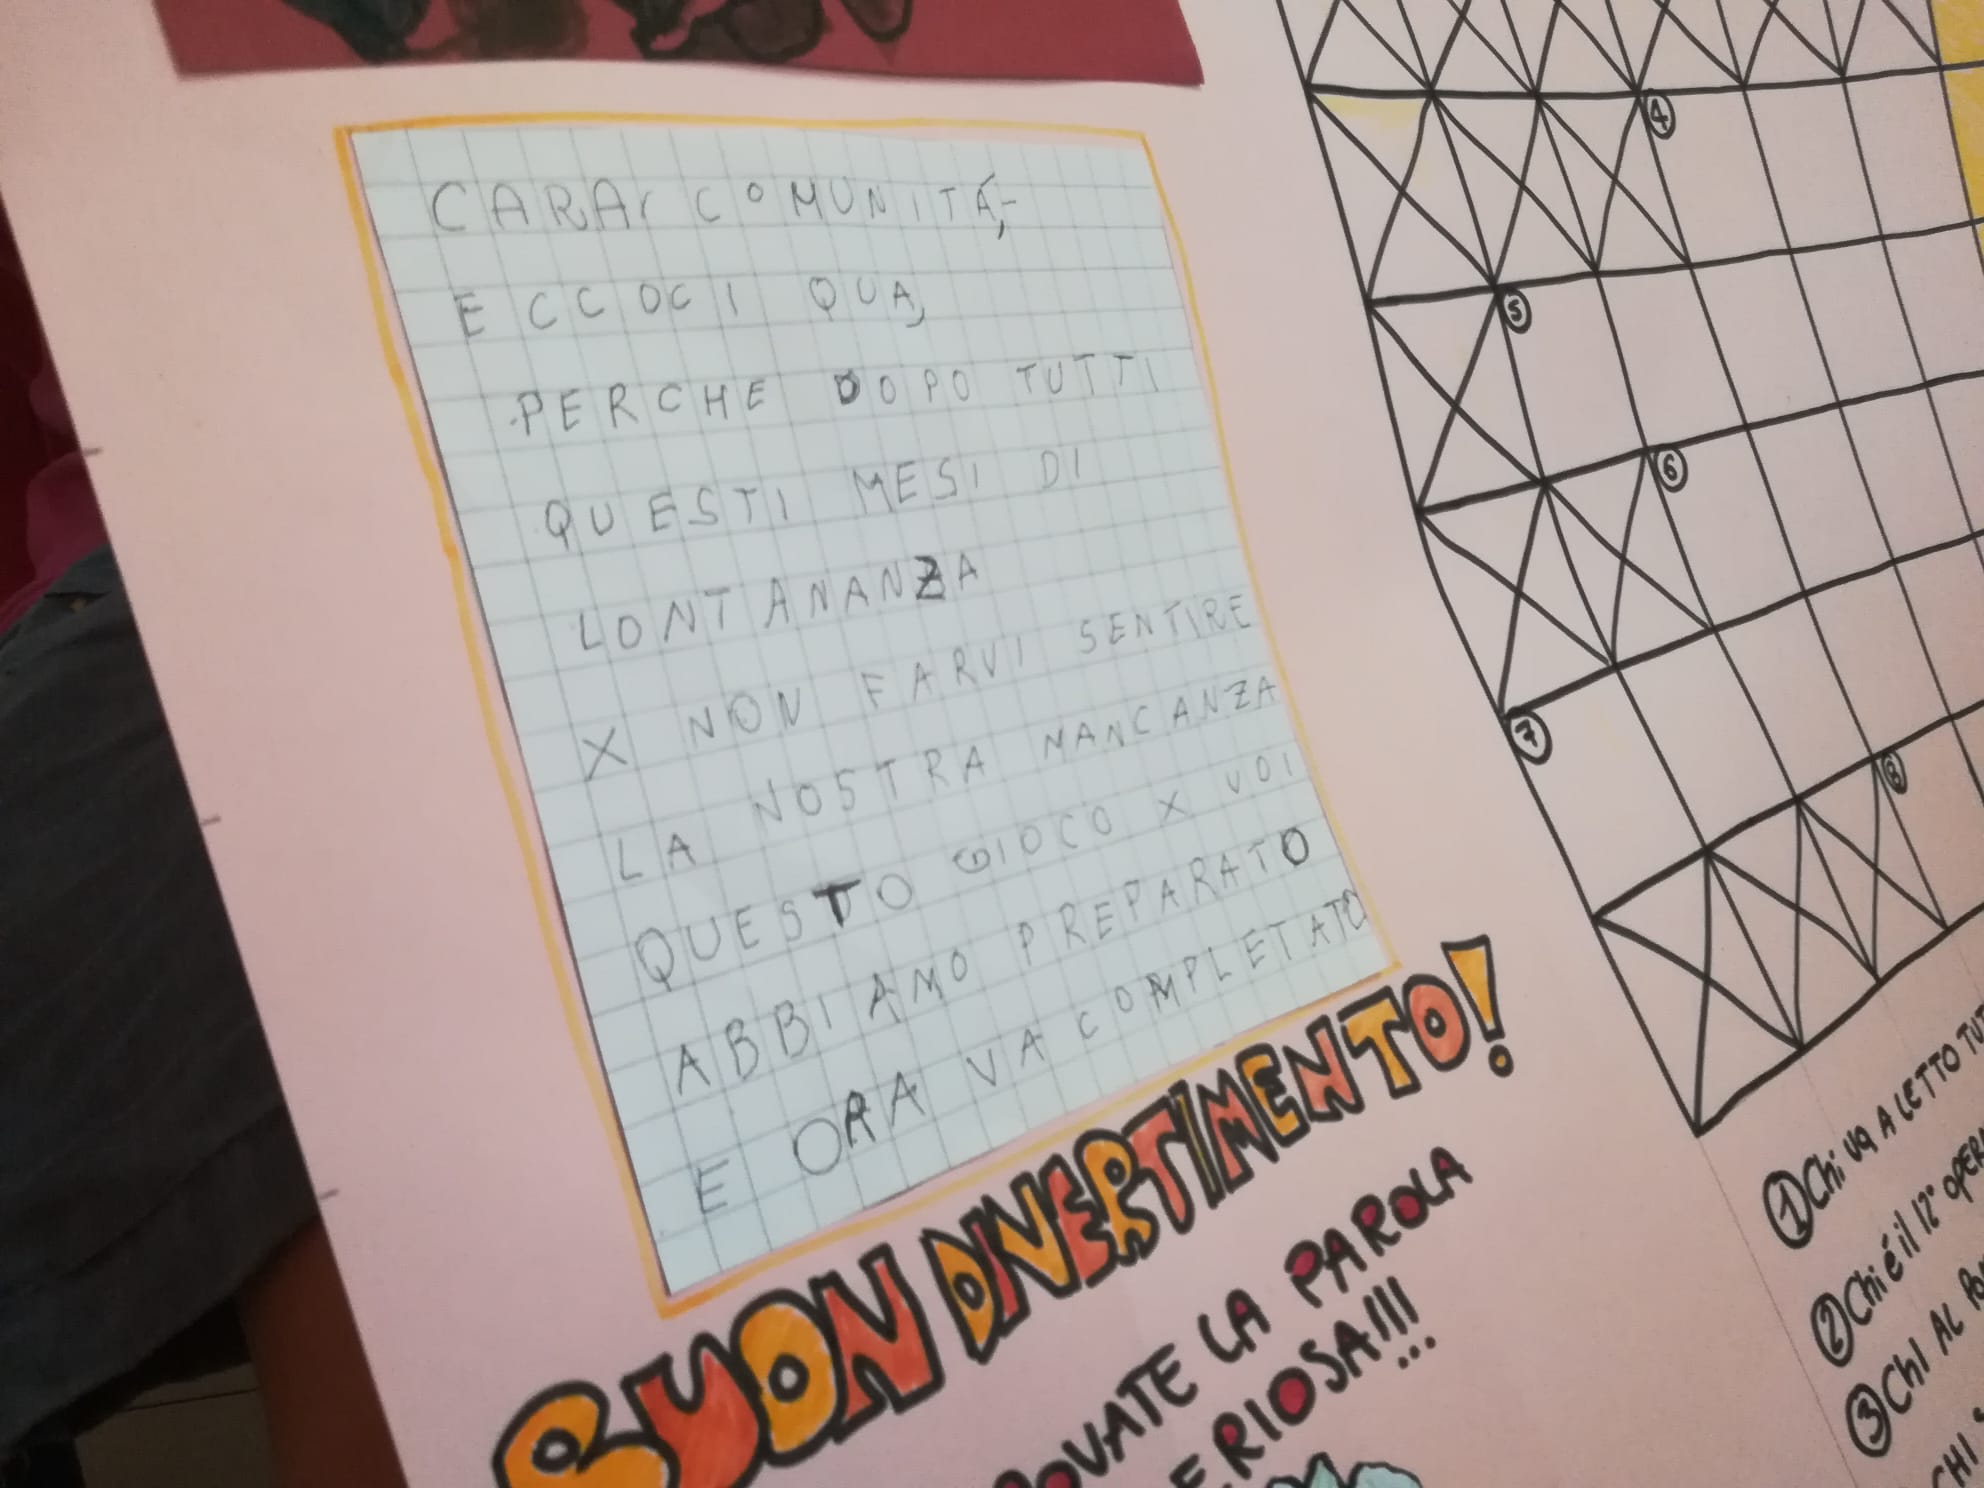 CARA COMUNITÁ,
ECCOCI QUA,
PERCHE DOPO TUTTI
QUESTI MESI DI
LONTANANZA
X NON FARVI SENTIRE
LA NOSTRA MANCANZA
QUESTO GIOCO X VOI
ABBIAMO PREPARATO
E ORA VA COMPLETATO
BUON DIVERTIMENTO!
LA PAROLA
4
5
6
7
8
① Chi VA A LETTO
② Chi é il 12°
③ CHI AL
CHI